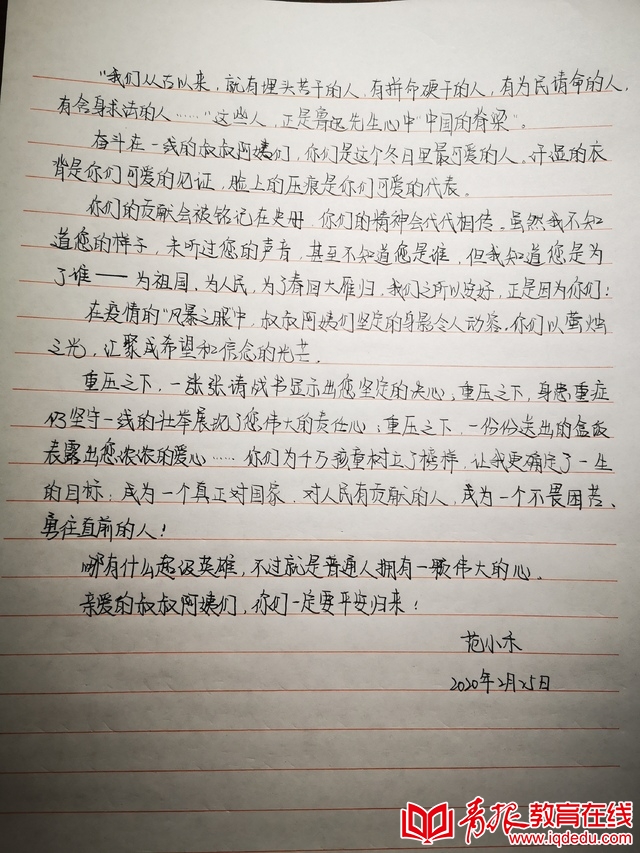 “我们从古以来,就有埋头苦干的人,有拼命硬干的人,有为民请命的人,
有舍身求法的人……”这些人,正是鲁迅先生心中“中国的脊梁”。
奋斗在一线的叔叔阿姨们,你们是这个冬日里最可爱的人,汗湿的衣
背是你们可爱的见证,脸上的压痕是你们可爱的代表。
你们的贡献会被铭记在史册,你们的精神会代代相传。虽然我不知
道您的样子,未听过您的声音,甚至不知道您是谁,但我知道您是为
了谁——为祖国,为人民,为了春回大雁归,我们之所以安好,正是因为你们!
在疫情的“风暴之眼”中,叔叔阿姨们坚定的身影令人动容。你们以萤烛
之光,汇聚成希望和信念的光芒。
重压之下,一张张请战书显示出您坚定的决心;重压之下,身患重症
仍坚守一线的壮举展现了您伟大的责任心;重压之下,一份份送出的盒饭
表露出您浓浓的爱心……你们为千万孩童树立了榜样,让我更确定了一生
的目标:成为一个真正对国家、对人民有贡献的人,成为一个不畏困苦、
勇往直前的人!
哪有什么超级英雄,不过就是普通人拥有一颗伟大的心。
亲爱的叔叔阿姨们,你们一定要平安归来!
范小禾
2020年2月25日
青报教育在线
www.iqdedu.com